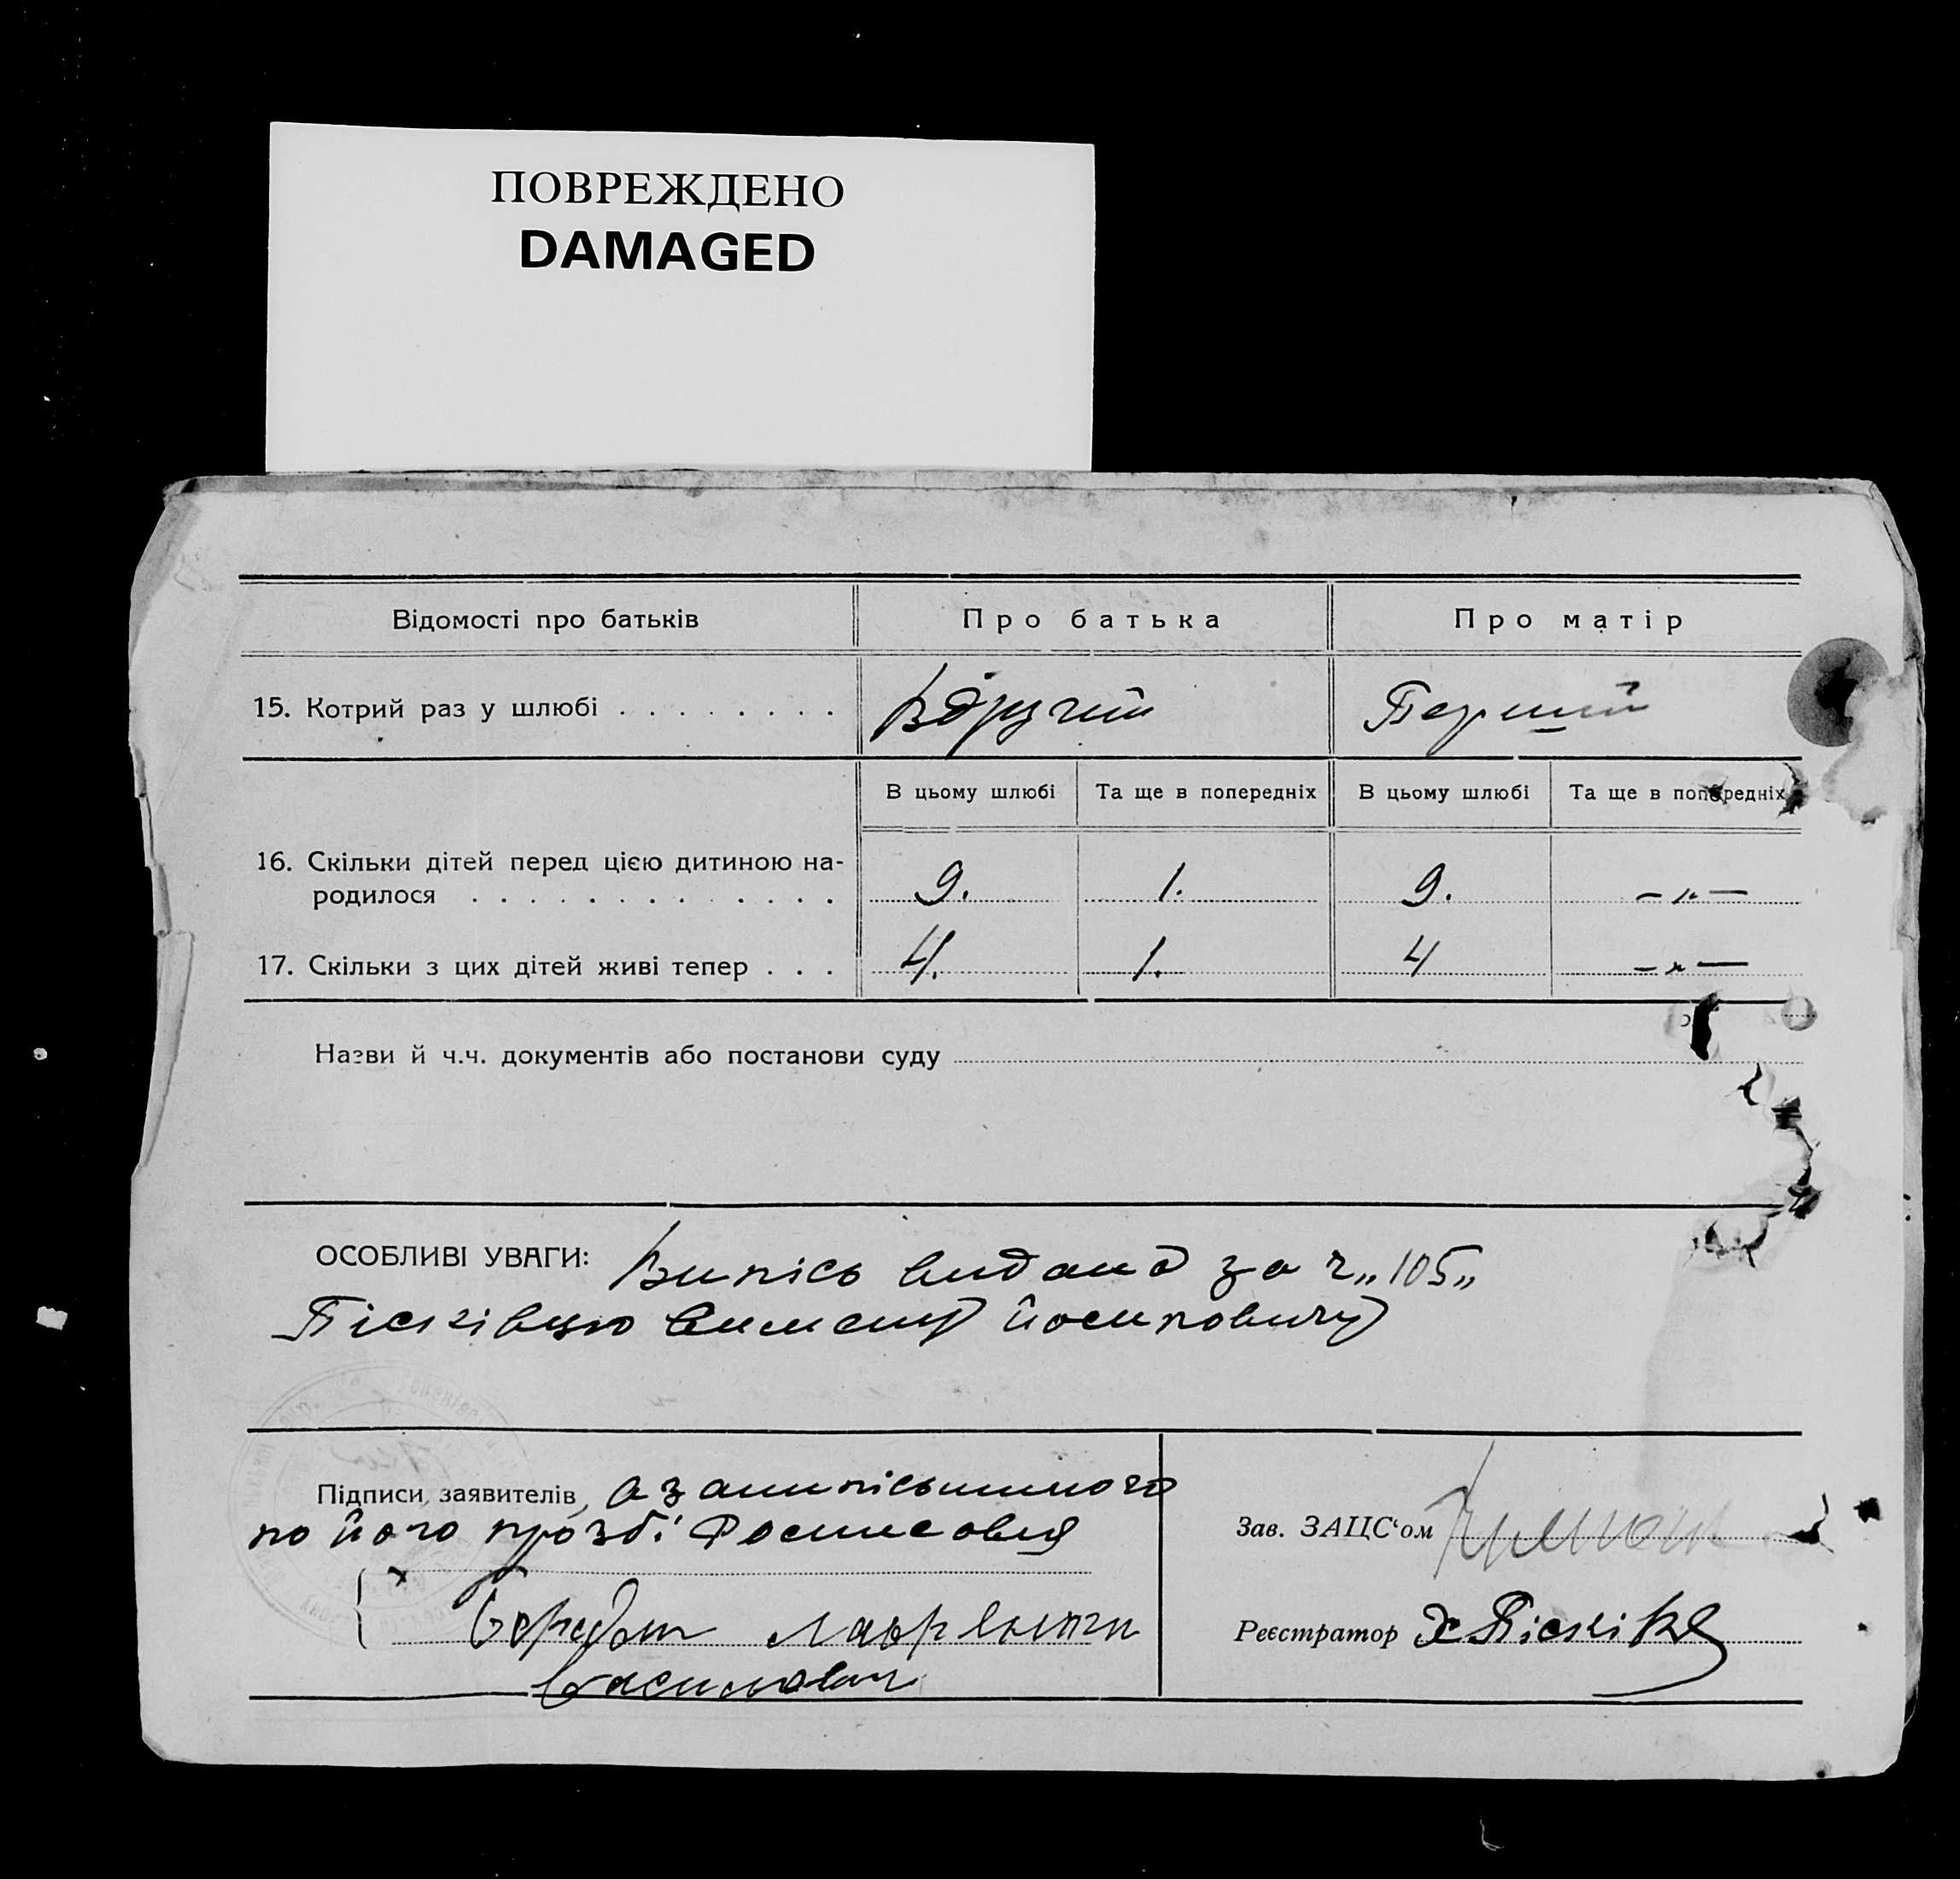 ПОВРЕЖДЕНО
DAMAGED
Відомості про батьків
Про батька
Про матір
15. Котрий раз у шлюбі . . . . . . . .
Вдругий
Перший
В цьому шлюбі
Та ще в попередніх
В цьому шлюбі
Та ще в попередніх
16. Скільки дітей перед цією дитиною на-
родилося . . . . . . . . . . . . .
9.
1.
9.
— „ —
17. Скільки з цих дітей живі тепер . . .
4.
1.
4
— „ —
Назви й ч.ч. документів або постанови суду
ОСОБЛИВІ УВАГИ: Випісь видана за ч „105„
Йосиповичу
Підписи заявителів, а за
по його прозбі
Василович
Зав. ЗАЦС‘ом
Реєстратор